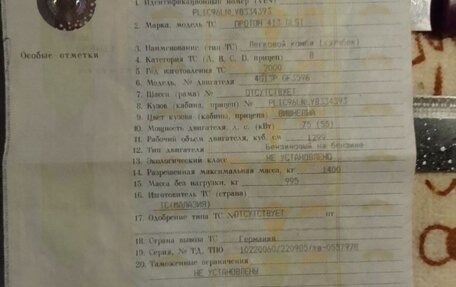 1. Идентификационный номер (VIN)
PLIC96LNLYB334393
2. Марка, модель ТС ПРОТОН 413 GLSI
Особые отметки
3. Наименование (тип ТС) Легковой комби (хэтчбек)
4. Категория ТС (A, B, C, D, прицеп) B
5. Год изготовления ТС 2000
6. Модель, № двигателя 4G13P GF3596
7. Шасси (рама) № ОТСУТСТВУЕТ
8. Кузов (кабина, прицеп) № PLIC96LNLYB334393
9. Цвет кузова (кабины, прицепа) ВИШНЕВЫЙ
10. Мощность двигателя, л. с. (кВт) 75 (55)
11. Рабочий объем двигателя, куб. см 1299
12. Тип двигателя Бензиновый на бензине
13. Экологический класс НЕ УСТАНОВЛЕНО
14. Разрешенная максимальная масса, кг 1400
15. Масса без нагрузки, кг 995
16. Изготовитель ТС (страна)
ТС(МАЛАЗИЯ)
17. Одобрение типа ТС № ОТСУТСТВУЕТ от
18. Страна вывоза ТС Германия
19. Серия, № ТД, ТПО 10220060/220905/
20. Таможенные ограничения
НЕ УСТАНОВЛЕНЫ